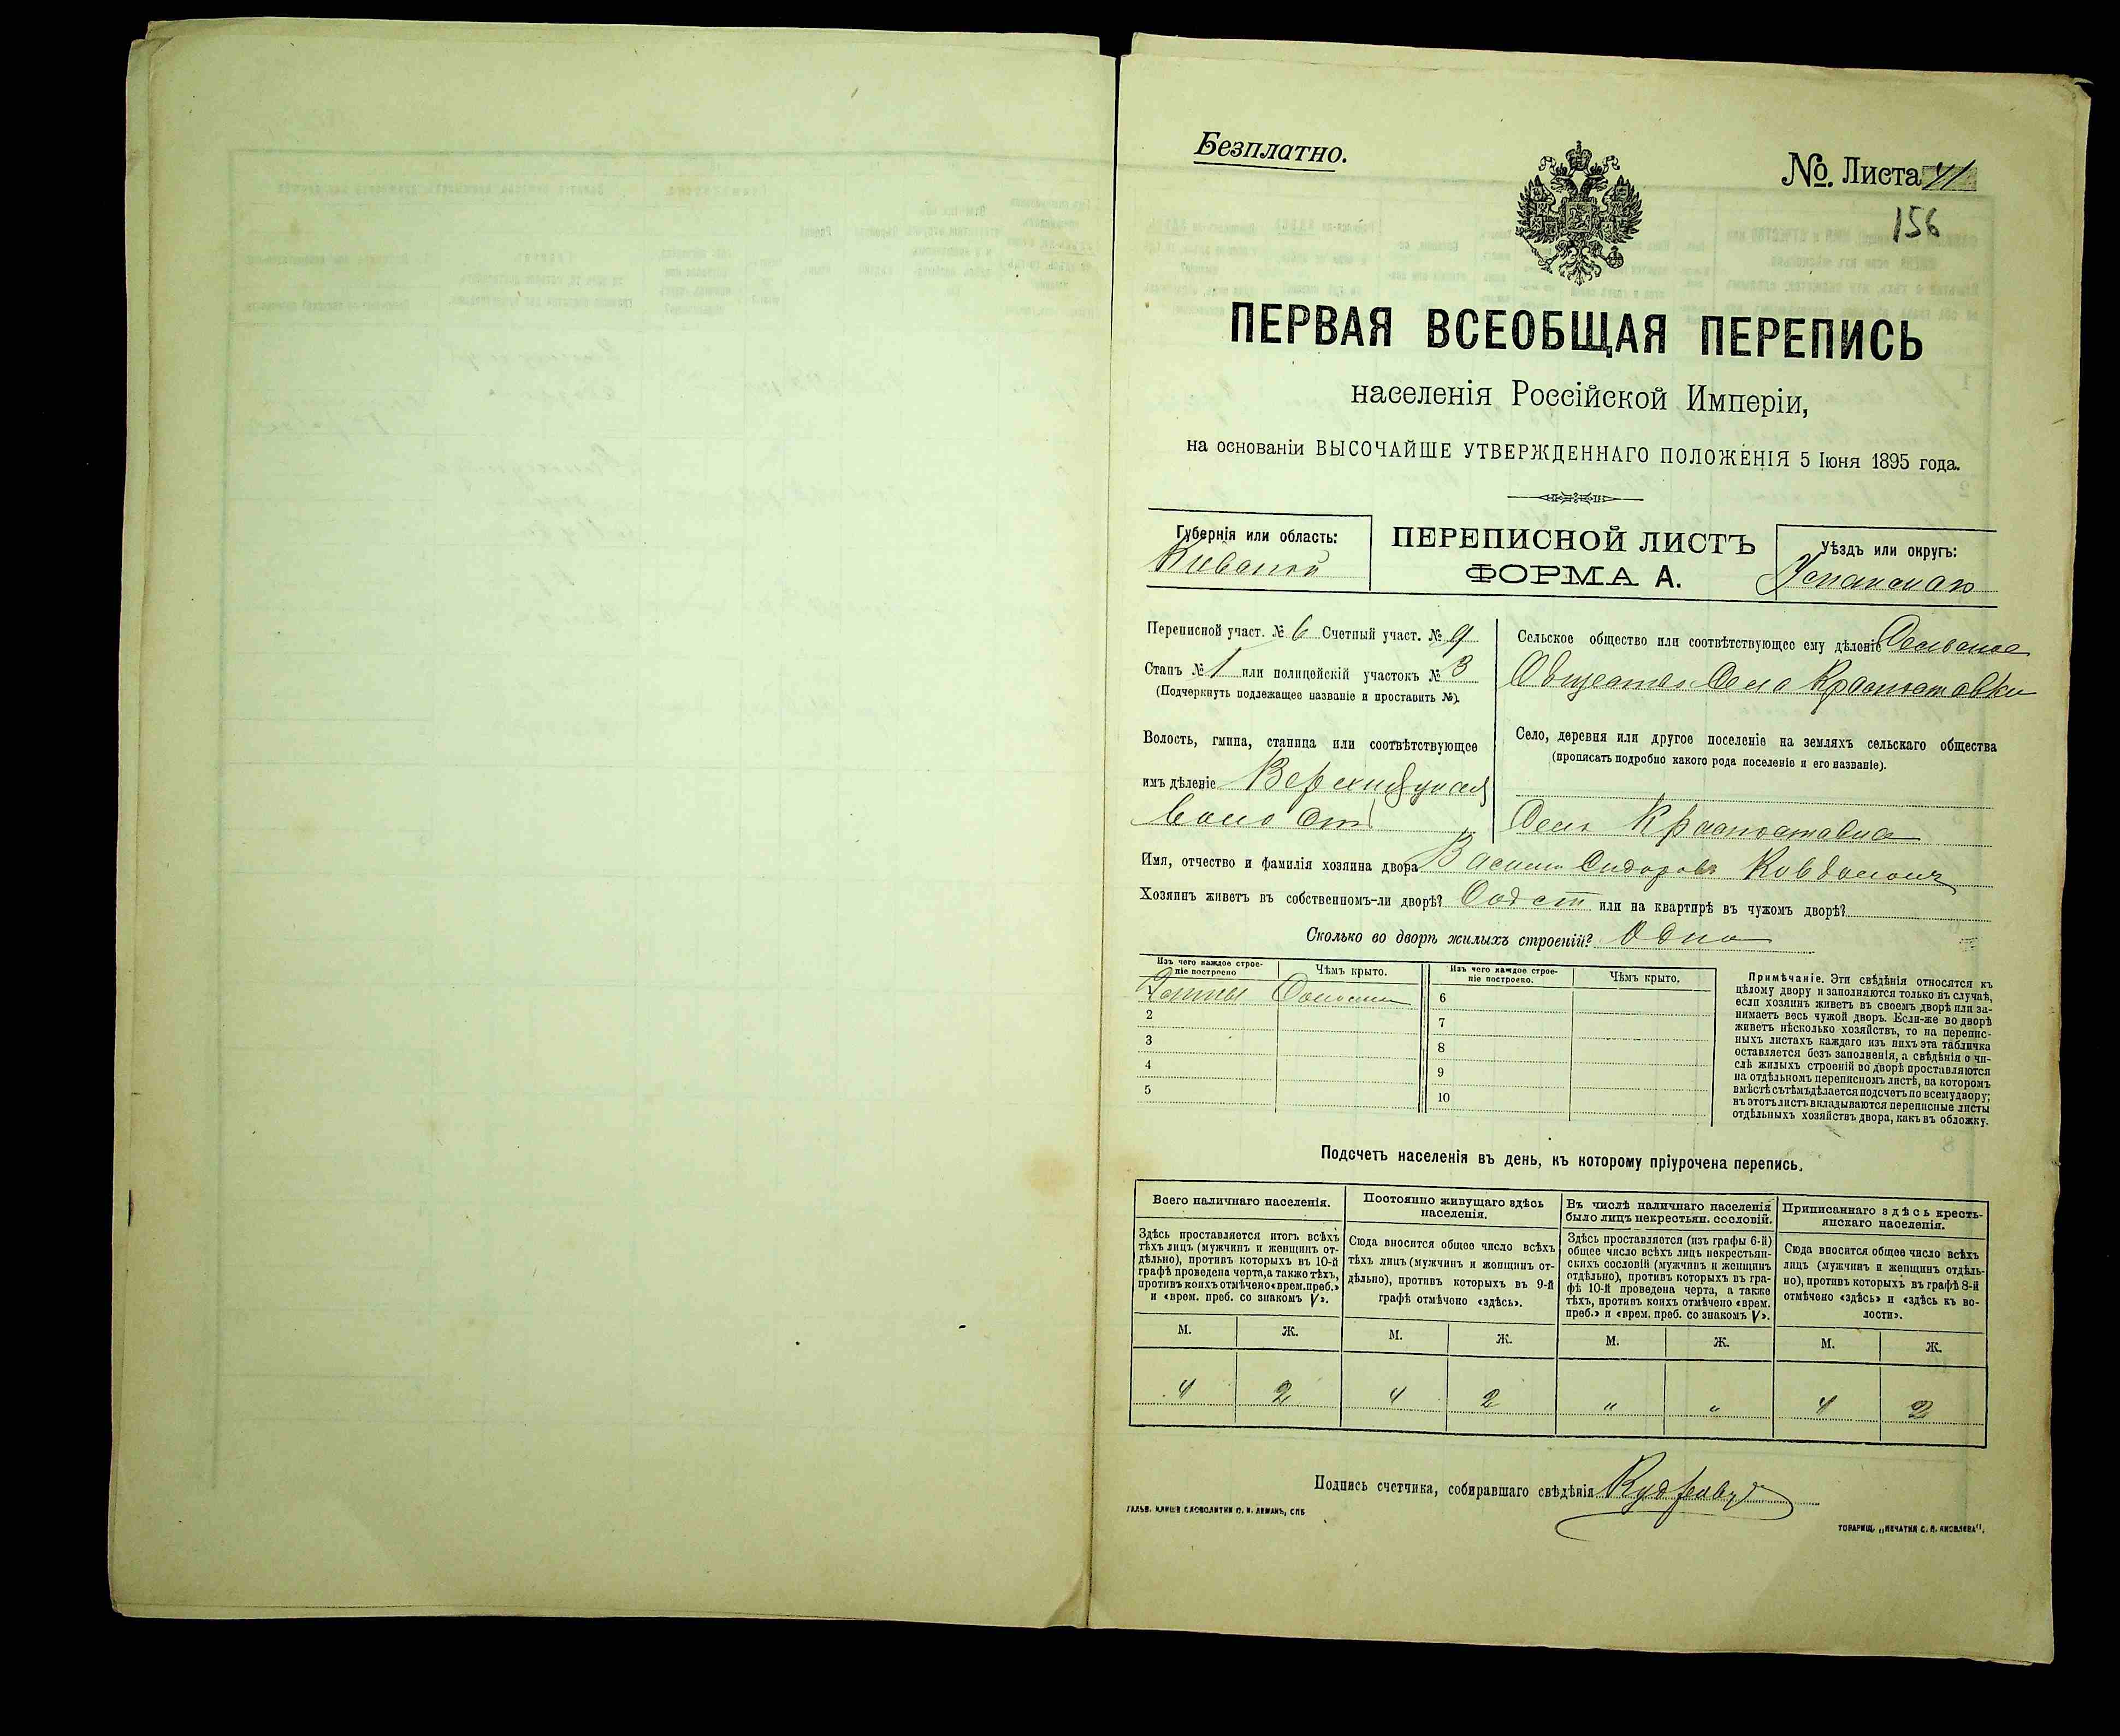 Безплатно.
№. Листа 41
156
ПЕРВАЯ ВСЕОБЩАЯ ПЕРЕПИСЬ
населенія Россійской Имперіи,
на основаніи ВЫСОЧАЙШЕ УТВЕРЖДЕННАГО ПОЛОЖЕНІЯ 5 Іюня 1895 года.
Губернія или область:
Киевской
ПЕРЕПИСНОЙ ЛИСТЪ
ФОРМА А.
Уѣздъ или округъ:
Уманскаго
Переписной участ. № 6 Счетный участ. № 9
Станъ № 1 или полицейскій участокъ № 3
(Подчеркнуть подлежащее названіе и проставить №).
Волость, гмина, станица или соотвѣтствующее
имъ дѣленіе
Сельское общество или соотвѣтствующее ему дѣленіе Сельское
Общество Село Краснотавки
Село, деревня или другое поселеніе на земляхъ сельскаго общества
(прописать подробно какого рода поселеніе и его названіе).
Имя, отчество и фамилія хозяина двора Василий Сидоровъ
Хозяинъ живетъ въ собственномъ-ли дворѣ? или на квартирѣ въ чужомъ дворѣ?
Сколько во дворѣ жилыхъ строеній? Одно
Изъ чего каждое строе-
ніе построено
Чѣмъ крыто.
Изъ чего каждое строе-
ніе построено.
Чѣмъ крыто.
1 Глины Соломы
2
3
4
5
6
7
8
9
10
Примѣчаніе. Эти свѣдѣнія относятся къ
цѣлому двору и заполняются только въ случаѣ,
если хозяинъ живетъ въ своемъ дворѣ или за-
нимаетъ весь чужой дворъ. Если-же во дворѣ
живетъ нѣсколько хозяйствъ, то на перепис-
ныхъ листахъ каждаго изъ нихъ эта табличка
оставляется безъ заполненія, а свѣдѣнія о чи-
слѣ жилыхъ строеній во дворѣ проставляются
на отдѣльномъ переписномъ листѣ, на которомъ
вмѣстѣ съ тѣмъ дѣлается подсчетъ по всему двору;
въ этотъ листъ вкладываются переписные листы
отдѣльныхъ хозяйствъ двора, какъ въ обложку.
Подсчетъ населенія въ день, къ которому пріурочена перепись.
Всего наличнаго населенія.
Здѣсь проставляется итогъ всѣхъ
тѣхъ лицъ (мужчинъ и женщинъ от-
дѣльно), противъ которыхъ въ 10-й
графѣ проведена черта, а также тѣхъ,
противъ коихъ отмѣчено «врем. преб.»
и «врем. преб. со знакомъ V».
Постоянно живущаго здѣсь
населенія.
Сюда вносится общее число всѣхъ
тѣхъ лицъ (мужчинъ и женщинъ от-
дѣльно), противъ которыхъ въ 9-й
графѣ отмѣчено «здѣсь».
Въ числѣ наличнаго населенія
было лицъ некрестьян. сословій.
Здѣсь проставляется (изъ графы 6-й)
общее число всѣхъ лицъ некрестьян-
скихъ сословій (мужчинъ и женщинъ
отдѣльно), противъ которыхъ въ гра-
фѣ 10-й проведена черта, а также
тѣхъ, противъ коихъ отмѣчено «врем.
преб.» и «врем. преб. со знакомъ V».
Приписаннаго здѣсь кресть-
янскаго населенія.
Сюда вносится общее число всѣхъ
лицъ (мужчинъ и женщинъ отдѣль-
но), противъ которыхъ въ графѣ 8-й
отмѣчено «здѣсь» и «здѣсь къ во-
лости».
М. Ж. М. Ж. М. Ж. М. Ж.
4 2 4 2 " " 4 2
Подпись счетчика, собиравшаго свѣдѣнія
ГАЛЬВ. КЛИШЕ СЛОВОЛИТНИ О. И. ЛЕМАНЪ, СПБ
ТОВАРИЩ. „ПЕЧАТНЯ С. П. ЯКОВЛЕВА".